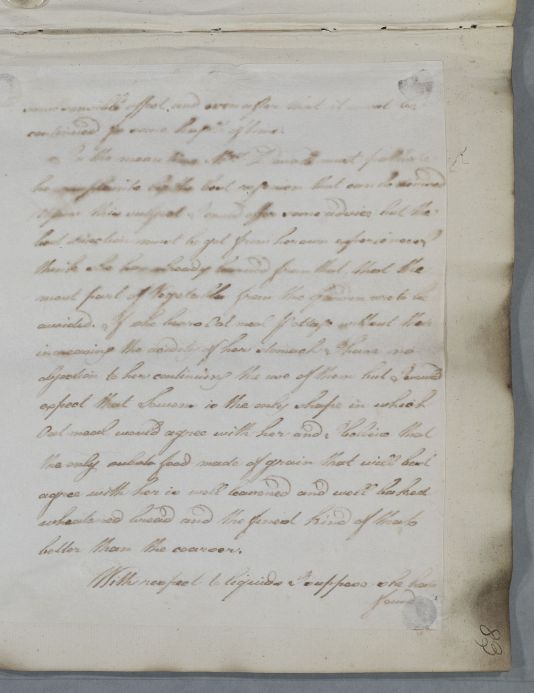 some sensible effect and even after that it must be
continued for some length of time.
In the mean time Mrs must palliate
her complaints by the best regimen that can be devised
Upon this subject I could offer some advice but the
best direction must be got from her own experience I
think she has already learned from that that the
most part of Vegetables from the Garden are to be
avoided. If she bears Oat meal Pottage without their
increasing the acidity of her stomach I have no
objection to her continuing the use of them but I would
expect that Sowens is the only shape in which
Oat meal would agree with her and I believe that
the only solid food made of grain that will best
agree with her is well leavened and well baked
wheaten bread and the finest kind of that is
better than the coarser.
With respect to liquids I suppose she has
found
83